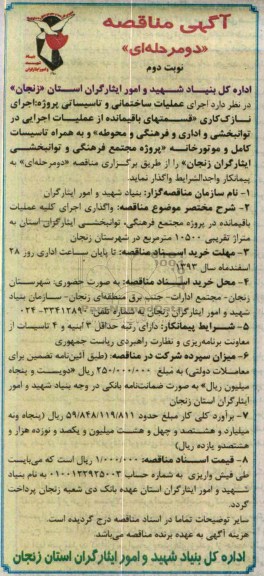 آگهی مناقصه
«دومرحله‌ای»
نوبت دوم
اداره کل بنیاد شهید و امور ایثارگران استان «زنجان»
در نظر دارد اجرای عملیات ساختمانی و تاسیساتی پروژه:اجرای
نازک‌کاری «قسمتهای باقیمانده از عملیات اجرایی در
توانبخشی و اداری و فرهنگی و محوطه» و به همراه تاسیسات
کامل و موتورخانه «پروژه مجتمع فرهنگی و توانبخشی
ایثارگران زنجان» را از طریق برگزاری مناقصه «دومرحله‌ای» به
پیمانکار واجدالشرایط واگذار نماید.
۱- نام سازمان مناقصه‌گزار: بنیاد شهید و امور ایثارگران
۲- شرح مختصر موضوع مناقصه: واگذاری اجرای کلیه عملیات
باقیمانده در پروژه مجتمع فرهنگی، توانبخشی ایثارگران استان به
متراژ تقریبی ۱۰۵۰۰ مترمربع در شهرستان زنجان
۳- مهلت خرید اسناد مناقصه: تا پایان ساعت اداری روز ۲۸
اسفندماه سال ۱۳۹۳
۴- محل خرید اسناد مناقصه: به صورت حضوری: شهرستان
زنجان- مجتمع ادارات- جنب برق منطقه‌ای زنجان- سازمان بنیاد
شهید و امور ایثارگران زنجان به شماره تلفن: ۳۳۴۱۲۸۹۰-۰۲۴
۵- شرایط پیمانکار: دارای رتبه حداقل ۳ ابنیه و ۴ تاسیسات از
معاونت برنامه‌ریزی و نظارت راهبردی ریاست جمهوری
۶- میزان سپرده شرکت در مناقصه: (طبق آئین‌نامه تضمین برای
معاملات دولتی) به مبلغ ۲۵۰/۰۰۰/۰۰۰ ریال «دویست و پنجاه
میلیون ریال» به صورت ضمانت‌نامه بانکی در وجه بنیاد شهید و امور
ایثارگران استان زنجان
۷- برآورد کلی کار مبلغ حدود ۵۹/۸۴۸/۱۱۹/۸۱۱ ریال (پنجاه ونه
میلیارد و هشتصد و چهل و هشت میلیون و یکصد و نوزده هزار و
هشتصدو یازده ریال)
۸- قیمت اسناد مناقصه: ۱/۰۰۰/۰۰۰ ریال است که می‌بایست
طی فیش واریزی به شماره حساب ۰۱۰۰۱۲۲۹۲۵۰۰۳ به نام بنیاد
شهید و امور ایثارگران استان عهده بانک دی شعبه زنجان پرداخت
گردد.
سایر توضیحات تماما در اسناد مناقصه درج گردیده است.
هزینه آگهی به عهده برنده مناقصه می‌باشد
اداره کل بنیاد شهید و امور ایثارگران استان زنجان